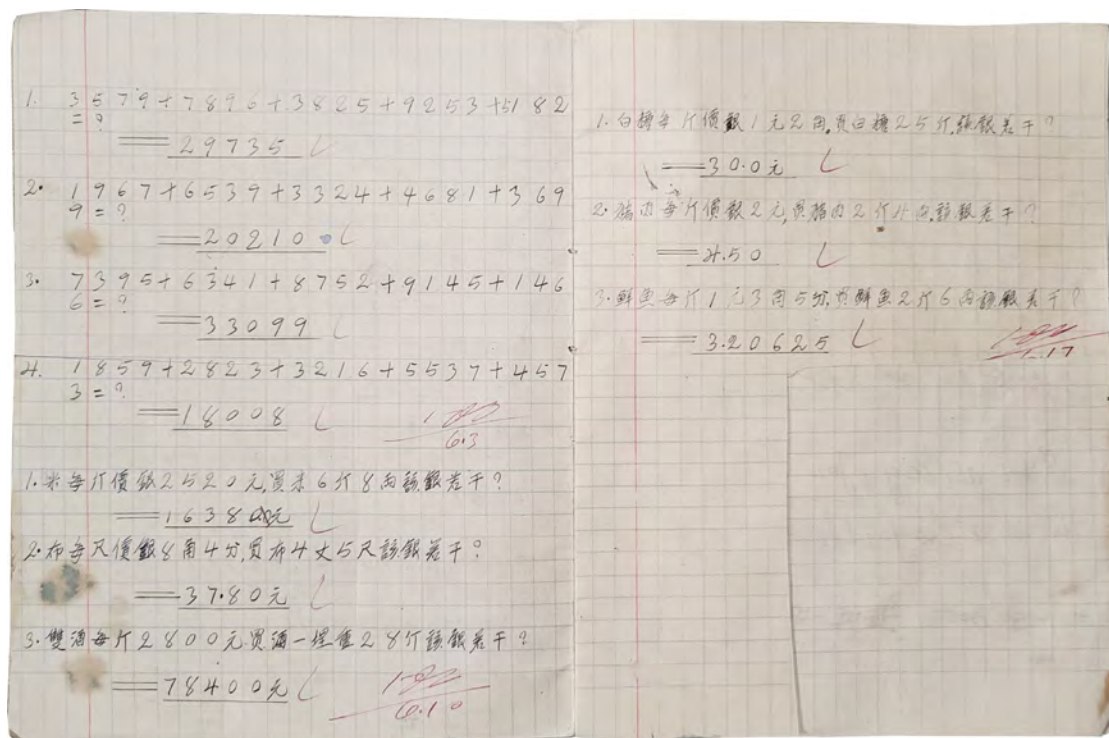 1. 3579+7896+3825+9253+5182
=?
=29735
2. 1967+6539+3324+4681+369
9=?
=20210
3. 7395+6341+8752+9145+146
6=?
=33099
4. 1859+2823+3216+5537+457
3=?
=18008
100
6.3
1.米每斤價銀2520元,買米6斤8兩該銀若干?
=16380元
2.布每尺價銀8角4分,買布4丈5尺該銀若干?
=37.80元
3.雙酒每斤2800元買酒一埕重28斤該銀若干?
=78400元
100
6.10
1.白糖每斤價銀1元2角,買白糖25斤,該銀若干?
=30.0元
2.豬肉每斤價銀2元,買豬肉2斤4兩,該銀若干?
=4.50
3.鮮魚每斤1元3角5分,買鮮魚2斤6兩該銀若干?
=3.20625
100
6.17